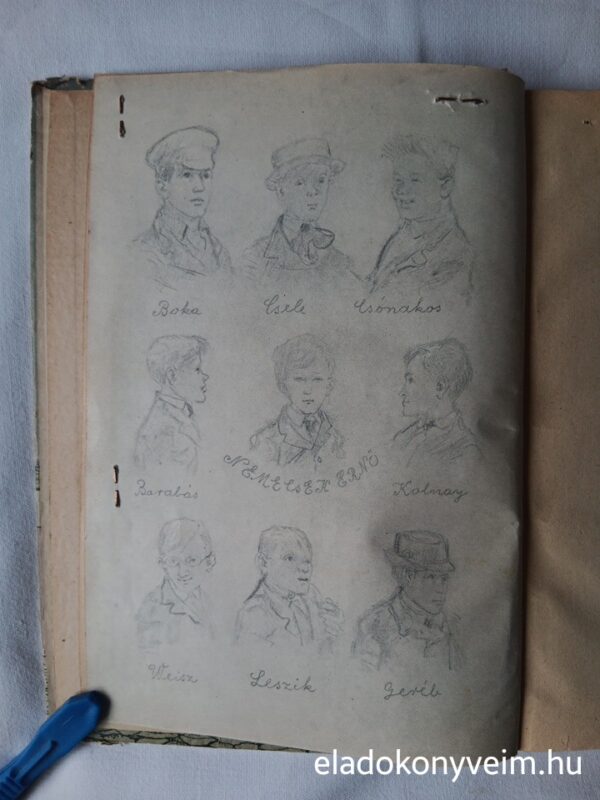 Boka Csele Csónakos
Barabás NEMECSEK ERNŐ Kolnay
Weisz Leszik Geréb
eladokonyveim.hu